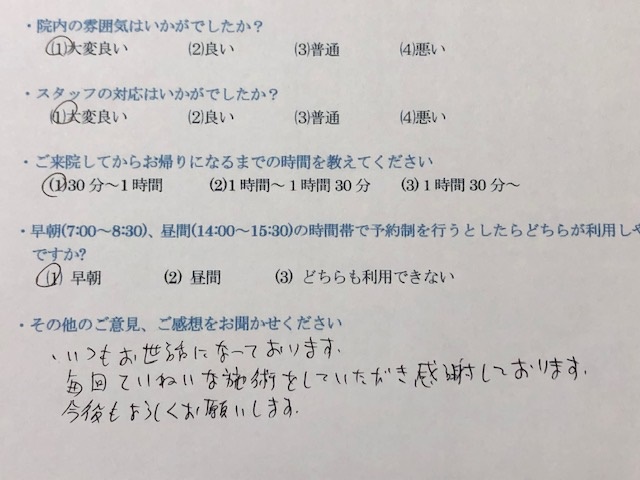 ・院内の雰囲気はいかがでしたか？
(1)大変良い (2)良い (3)普通 (4)悪い
・スタッフの対応はいかがでしたか？
(1)大変良い (2)良い (3)普通 (4)悪い
・ご来院してからお帰りになるまでの時間を教えてください
(1)30分〜1時間 (2)1時間〜1時間30分 (3)1時間30分〜
・早朝(7:00〜8:30)、昼間(14:00〜15:30)の時間帯で予約制を行うとしたらどちらが利用しや
ですか?
(1) 早朝 (2) 昼間 (3) どちらも利用できない
・その他のご意見、ご感想をお聞かせください
・いつもお世話になっております.
毎回ていねいな施術をしていただき感謝しております.
今後もよろしくお願いします.